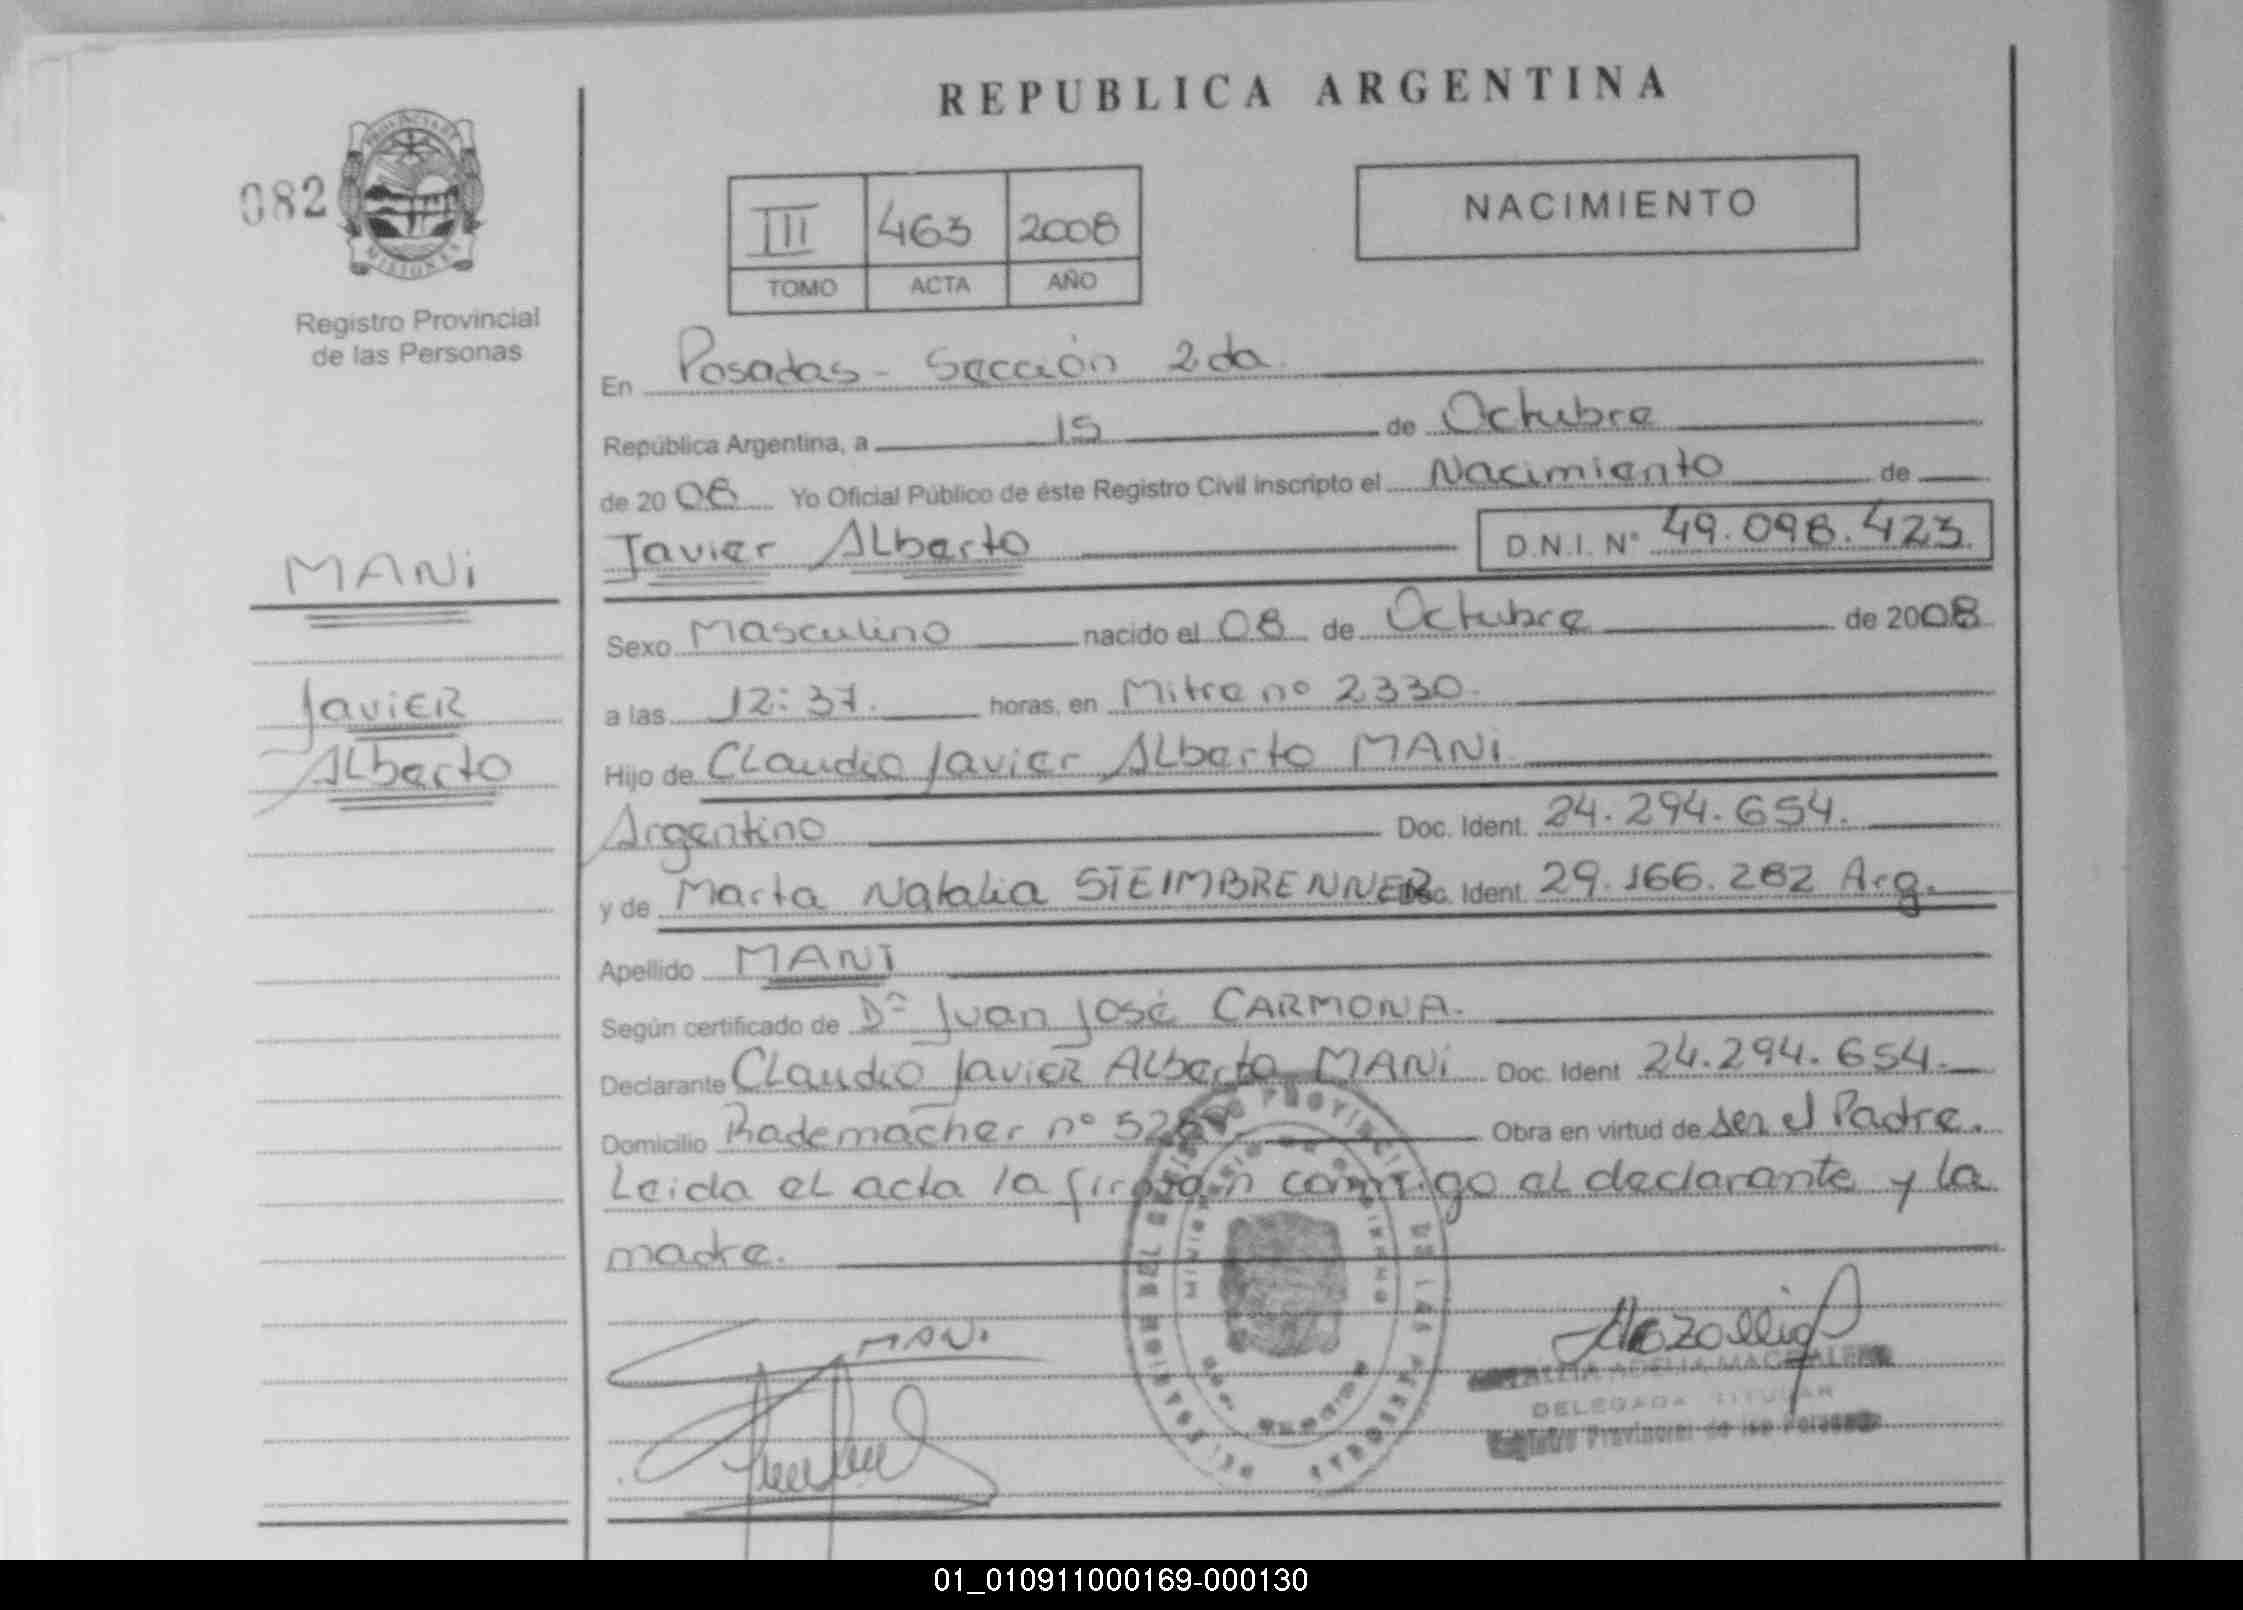 REPUBLICA ARGENTINA
082
PROVINCIA DE
MISIONES
Registro Provincial
de las Personas
III 463 2008
TOMO ACTA AÑO
NACIMIENTO
En Posadas - Sección 2da.
República Argentina, a 15 de Octubre
de 2008 Yo Oficial Público de éste Registro Civil inscripto el Nacimiento de
Javier Alberto D.N.I. N° 49.098.423.
MANI
Sexo Masculino nacido el 08 de Octubre de 2008
Javier
Alberto
a las 12:37. horas, en Mitre nº 2330.
Hijo de Claudio Javier Alberto MANI.
Argentino Doc. Ident. 24.294.654.
y de Marta Natalia STEIMBRENNER Doc. Ident. 29.166.282 Arg.
Apellido MANI
Según certificado de Dr Juan José CARMONA.
Declarante Claudio Javier Alberto MANI Doc. Ident 24.294.654.
Domicilio Rademacher nº Obra en virtud de ser el Padre.
Leida el acta la firman conmigo el declarante y la
madre.
MANI.
DELEGADA TITULAR
Registro Provincial de las Personas
01_010911000169-000130